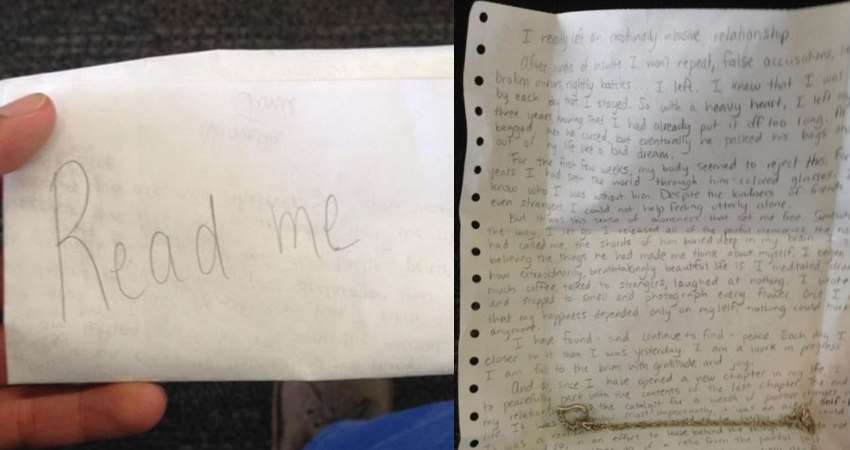 Read me
I recently left an emotionally abusive relationship.
After of insults I won't repeat, false accusations,
broken nightly battles... I left. I knew that I was
by each but I stayed. So with a heavy heart, I left my
three years knowing that I had already put it off too long.
begged, he cursed, but eventually he packed his bags and
out of my life like a bad dream.
For the first few weeks, my body seemed to reject this. For
years I had seen the world through him-colored glasses.
know who I was without him. Despite the kindness of friends
even strangers, I could not help feeling utterly alone.
But it was this sense of aloneness that set me free.
the way, I let go. I released all of the painful memories, the
had called me, the shards of him buried deep in my brain.
believing the things he had made me think about myself. I
how extraordinarily, breathtakingly beautiful life is. I meditated, drank
much coffee, talked to strangers, laughed at nothing. I wrote
and stopped to smell and photograph every flower. Once I
that my happiness depended only on myself, nothing could hurt
anymore.
I have found - and continue to find - peace. Each day I
closer to it than I was yesterday. I am a work in progress
I am full to the brim with gratitude and joy.
And so, since I have opened a new chapter in my life, I
to peacefully part with the contents of the last chapter. The end
my relationship the catalyst for a wealth of positive changes
life. It was most importantly, it was an self-
It was a could
and so, in an effort to leave behind the things not
of a relic from the painful past